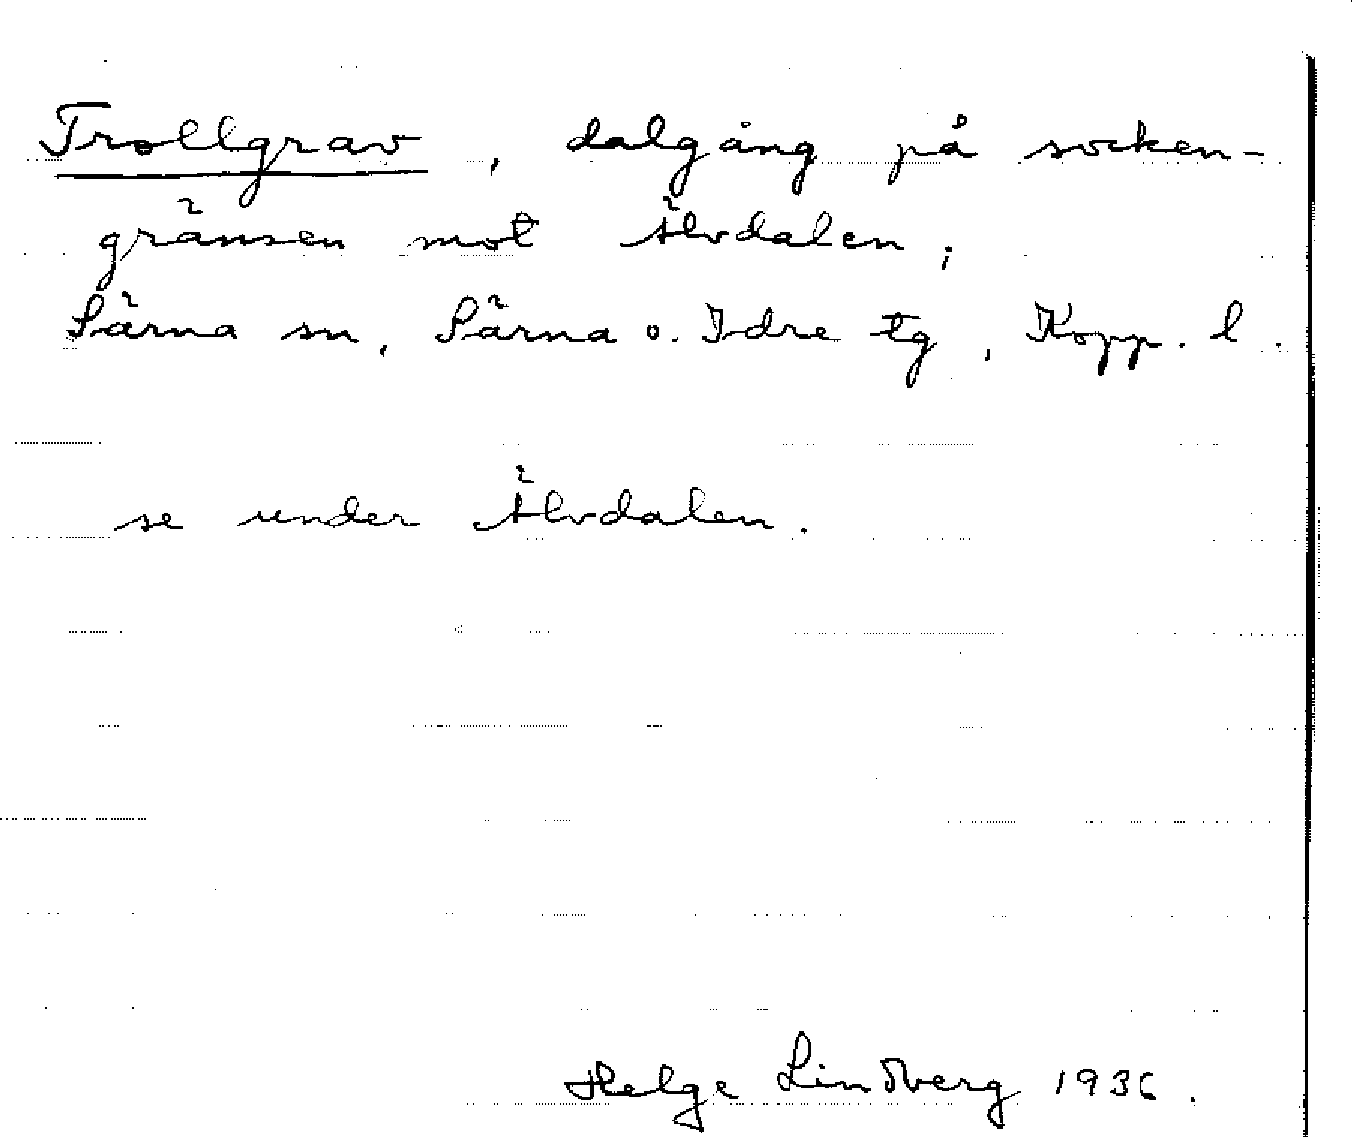 Trollgrav, dalgång på socken-
gränsen mot Älvdalen;
Särna sn, Särna o. Idre tg, Kopp. l.
se under Älvdalen.
Helge Lindberg 1936.